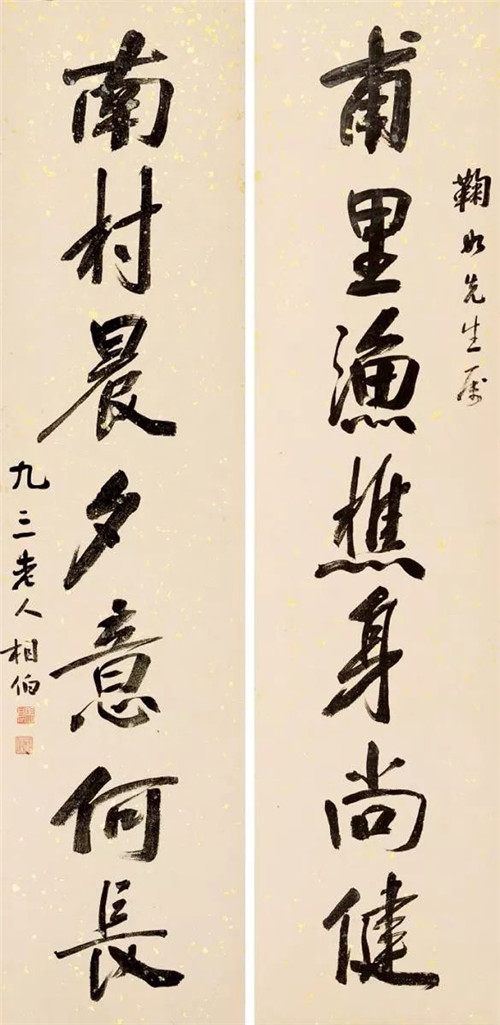 鞠如先生属
甫里漁樵身尚健
南村晨夕意何長
九三老人相伯